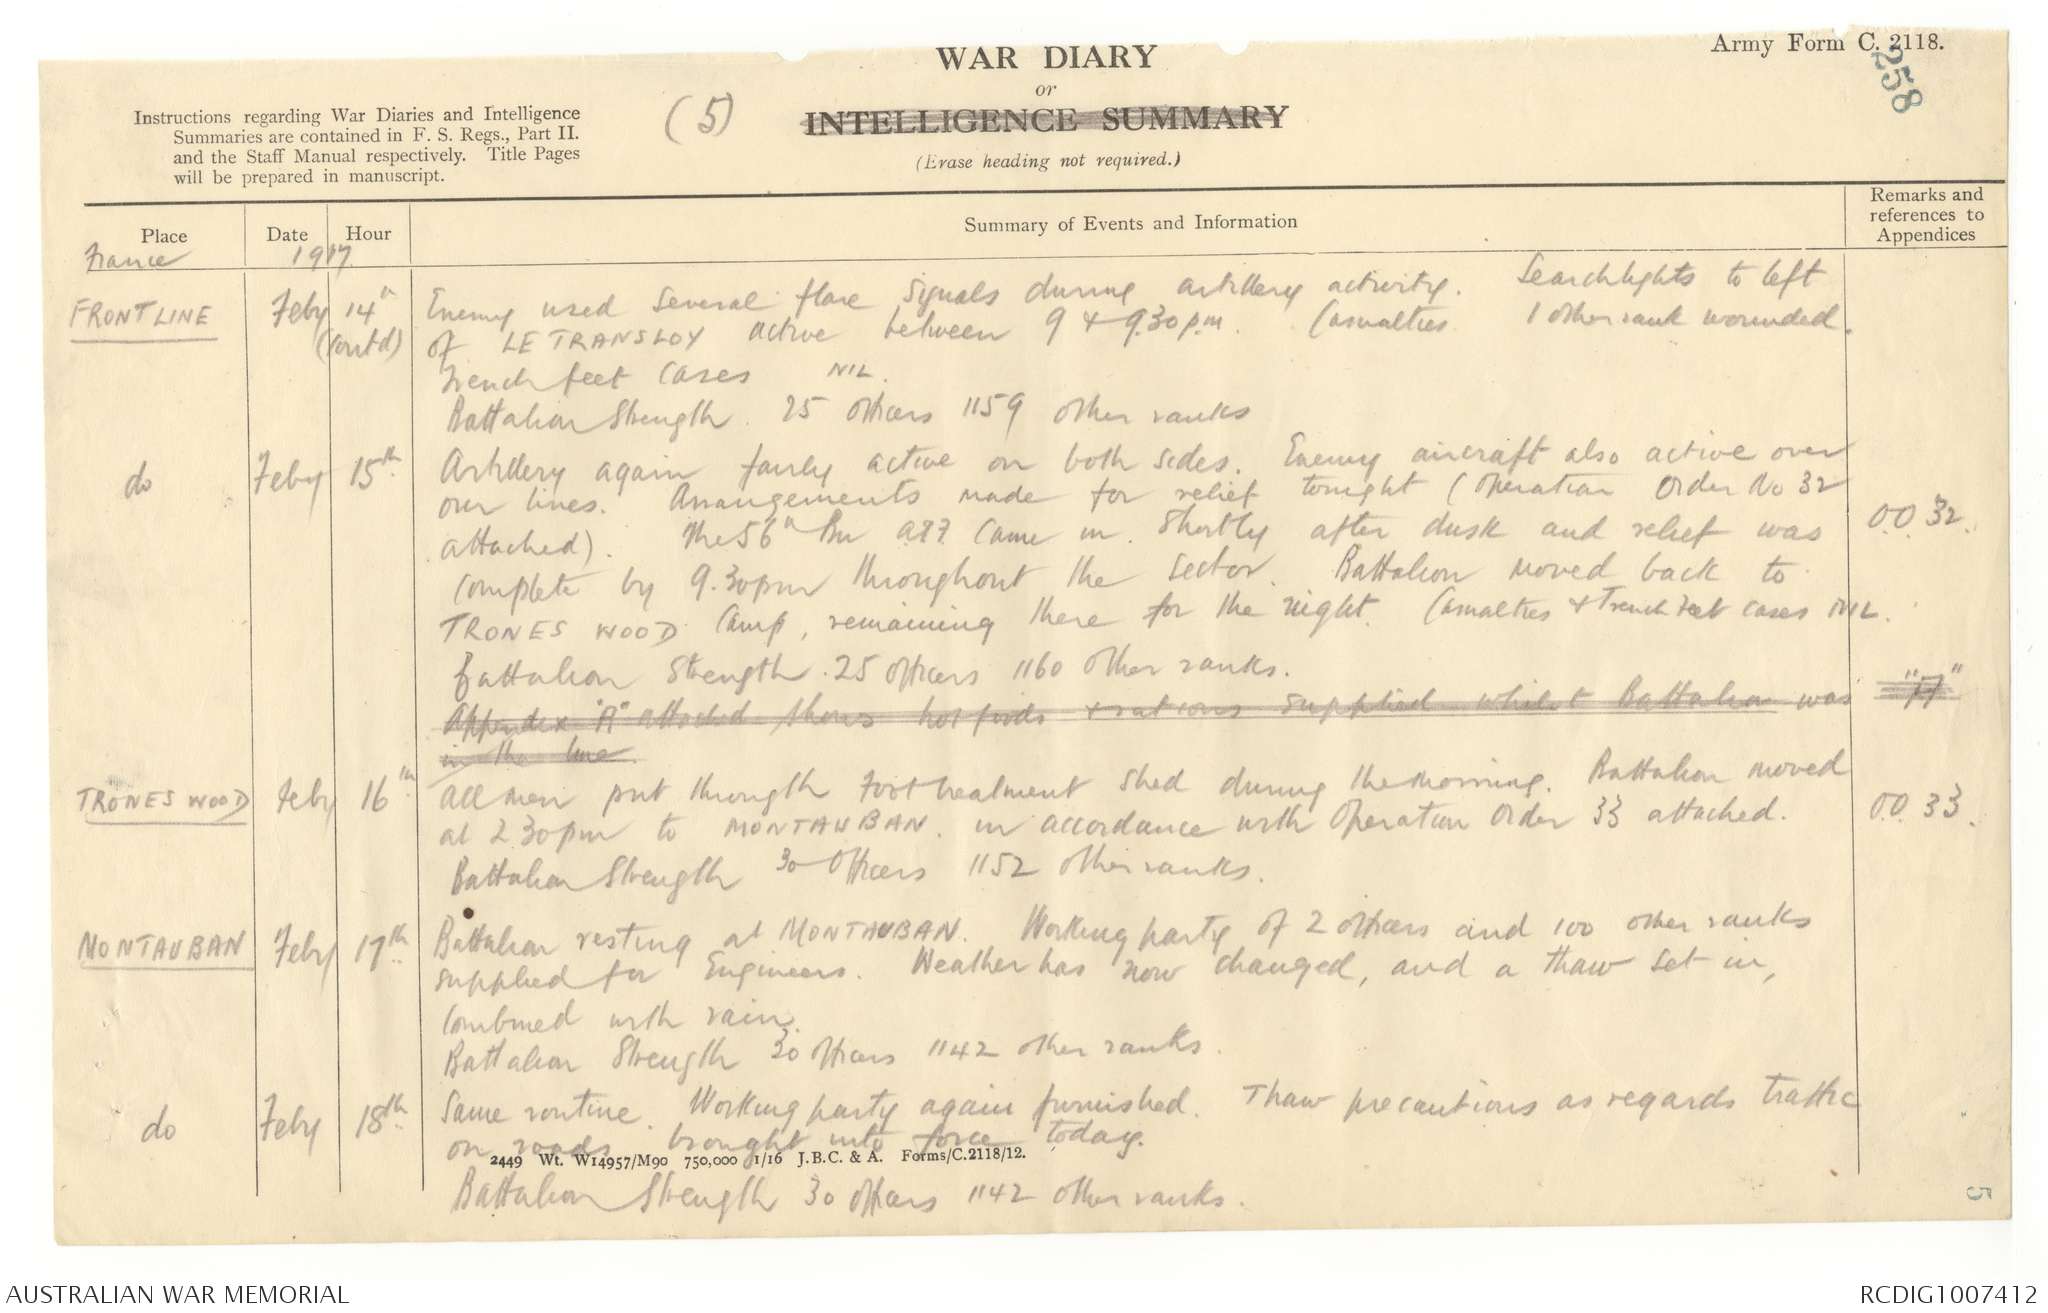 Army Form C. 2118.
258
WAR DIARY
or
INTELLIGENCE SUMMARY
(Erase heading not required.)
(5)
Instructions regarding War Diaries and Intelligence
Summaries are contained in F. S. Regs., Part II.
and the Staff Manual respectively. Title Pages
will be prepared in manuscript.
Place Date Hour Summary of Events and Information Remarks and references to Appendices
France 1917
FRONTLINE Feby 14th Enemy used several flare signals during artillery activity. Searchlights to left
(contd) of LE TRANSLOY active between 9 & 9.30pm. Casualties 1 other rank wounded.
Trench feet cases NIL.
Battalion Strength. 25 officers 1159 other ranks
do Feby 15th Artillery again fairly active on both sides. Enemy aircraft also active over
our lines. Arrangements made for relief tonight (Operation Order No 32
attached). The 56th Bn came in shortly after dusk and relief was O.O. 32.
complete by 9.30pm throughout the sector. Battalion moved back to
TRONES WOOD Camp, remaining there for the night. Casualties & Trench Feet cases NIL.
Battalion Strength. 25 officers 1160 other ranks.
Appendix "A" attached shows hot foods & rations supplied whilst Battalion was "A"
in the line.
TRONES WOOD Feby 16th All men put through Foot treatment shed during the morning. Battalion moved
at 2.30pm to MONTAUBAN. in accordance with Operation Order 33 attached. O.O. 33.
Battalion Strength 30 Officers 1152 other ranks.
MONTAUBAN Feby 17th Battalion resting at MONTAUBAN. Working party of 2 officers and 100 other ranks
supplied for Engineers. Weather has now changed, and a thaw set in,
combined with rain.
Battalion Strength 30 officers 1142 other ranks.
do Feby 18th Same routine. Working party again furnished. Thaw precautions as regards traffic
on roads brought into force today.
2449 Wt. W14957/M90 750,000 1/16 J.B.C. & A. Forms/C.2118/12.
Battalion Strength 30 officers 1142 other ranks.
5
AUSTRALIAN WAR MEMORIAL
RCDIG1007412